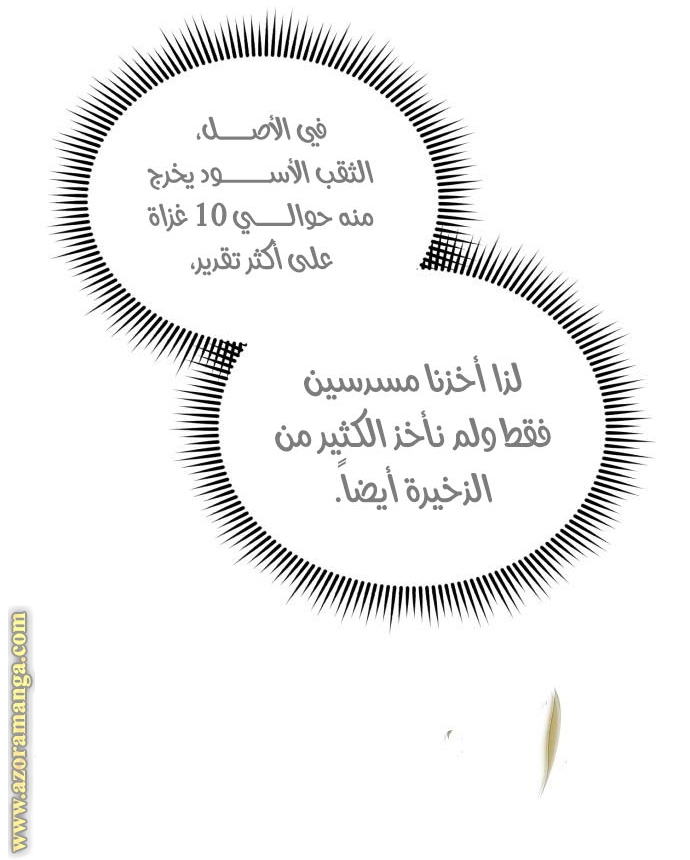 في الأصـــل،
الثقب الأســـود يخرج
منه حوالـــي 10 غزاة
على أكثر تقدير،
لزا أخزنا مسدسين
فقط ولم نأخز الكثير من
الزخيرة أيضاً.
www.azoramanga.com